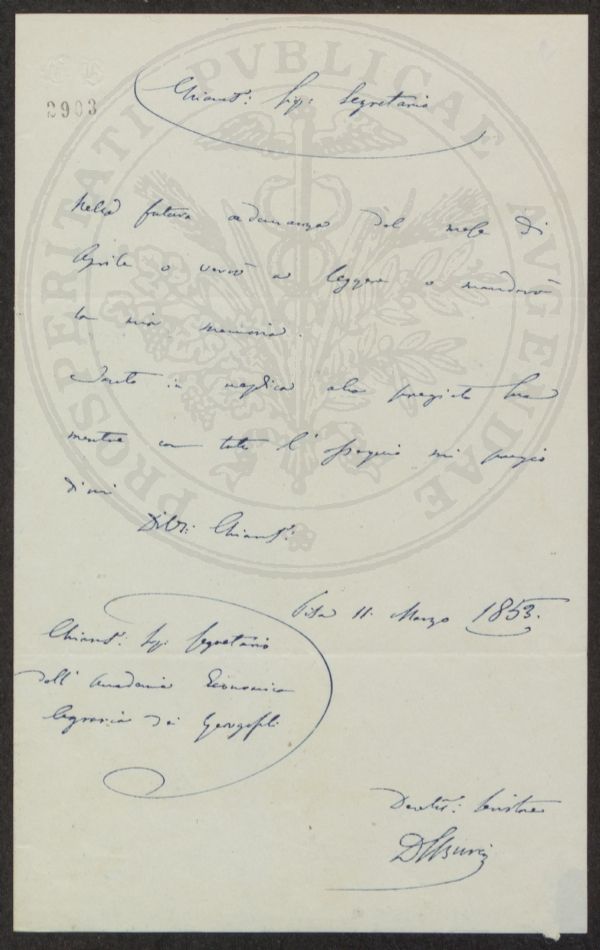 PROSPERITATI PVBLICAE AVGENDAE
2903
Chiariss: Sig: Segretario
Nella futura adunanza del mese di
Aprile o verrò a leggere o manderò
la mia memoria.
Tanto in replica alla pregiata Sua
mentre con tutto l' ossequio mi pregio
di mi
Di VS: Chiariss:
Pisa 11. Marzo 1853.
Chiariss: Sig: Segretario
dell' Accademia Economico
Agraria dei Georgofili
Devotiss: Servitore